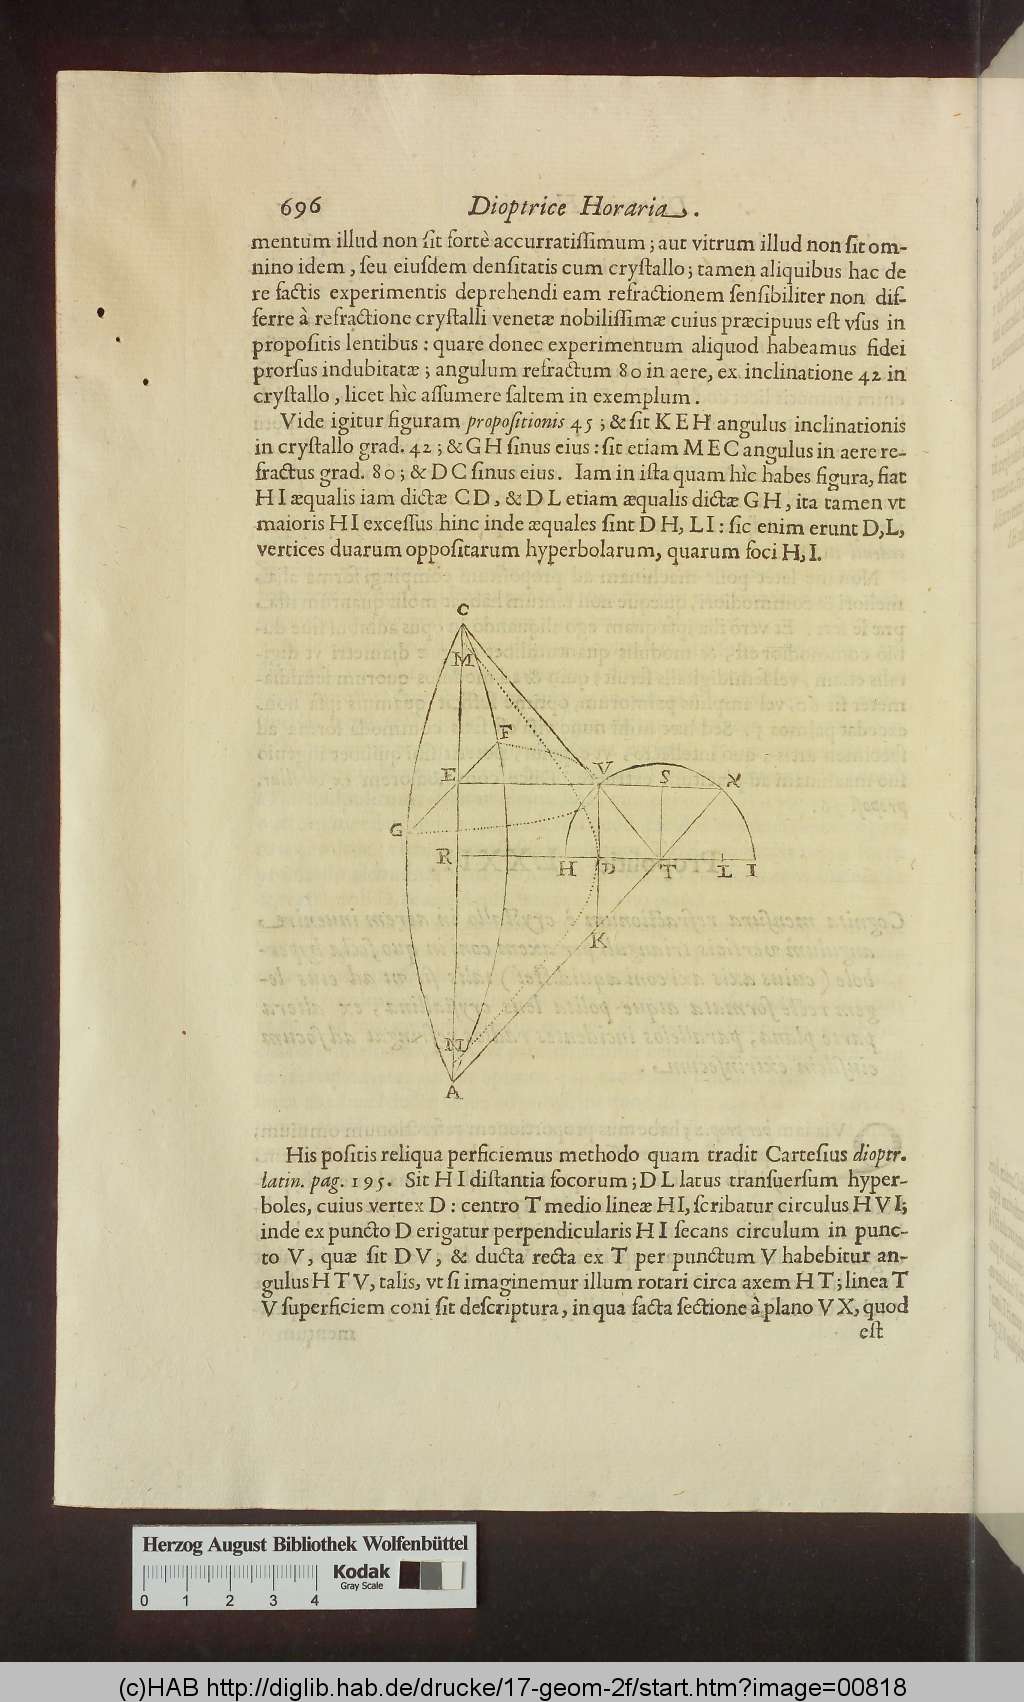 696 Dioptrice Horaria.
mentum illud non ſit fortè accurratiſſimum; aut vitrum illud non ſit om-
nino idem, ſeu eiuſdem denſitatis cum cryſtallo; tamen aliquibus hac de
re factis experimentis deprehendi eam refractionem ſenſibiliter non dif-
ferre à refractione cryſtalli venetæ nobiliſſimæ cuius præcipuus eſt vſus in
propoſitis lentibus: quare donec experimentum aliquod habeamus fidei
prorſus indubitatæ; angulum refractum 80 in aere, ex inclinatione 42 in
cryſtallo, licet hìc aſſumere ſaltem in exemplum.
Vide igitur figuram propoſitionis 45; & ſit K E H angulus inclinationis
in cryſtallo grad. 42; & G H ſinus eius: ſit etiam M E C angulus in aere re-
fractus grad. 80; & D C ſinus eius. Iam in iſta quam hìc habes figura, fiat
H I æqualis iam dictæ C D, & D L etiam æqualis dictæ G H, ita tamen vt
maioris H I exceſſus hinc inde æquales ſint D H, L I: ſic enim erunt D, L,
vertices duarum oppoſitarum hyperbolarum, quarum foci H, I.
C
M
F
E V S X
G
R H D T L I
K
N
A
His poſitis reliqua perficiemus methodo quam tradit Carteſius dioptr.
latin. pag. 195. Sit H I diſtantia focorum; D L latus tranſuerſum hyper-
boles, cuius vertex D: centro T medio lineæ H I, ſcribatur circulus H V I;
inde ex puncto D erigatur perpendicularis H I ſecans circulum in punc-
to V, quæ ſit D V, & ducta recta ex T per punctum V habebitur an-
gulus H T V, talis, vt ſi imaginemur illum rotari circa axem H T; linea T
V ſuperficiem coni ſit deſcriptura, in qua facta ſectione à plano V X, quod
eſt
Herzog August Bibliothek Wolfenbüttel
Kodak
Gray Scale
0 1 2 3 4
(c)HAB http://diglib.hab.de/drucke/17-geom-2f/start.htm?image=00818